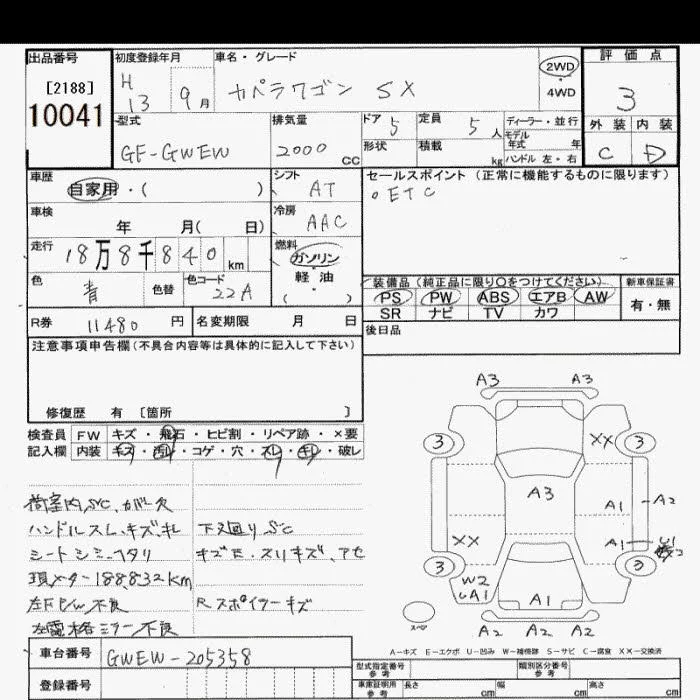 出品番号 初度登録年月 車名・グレード 評価点
[2188] H 13 9月 カペラワゴン SX 2WD・4WD 3
10041
型式 排気量 ドア 5 定員 5人 ディーラー・並行 外装 内装
GF-GWEW 2000cc 形状 積載 kg モデル年式 年 C D
ハンドル左・右
車歴 シフト セールスポイント(正常に機能するものに限ります)
自家用・( ) AT 。ETC
車検 冷房
年 月( 日) AAC
走行 燃料
18万8千840km ガソリン
軽・油
色 色替 色コード ( ) 装備品(純正品に限り○をつけてください) 新車保証書
青 22A PS PW ABS エアB AW 有・無
SR ナビ TV カワ
R券 11480円 名変期限 月 日 後日品
注意事項申告欄(不具合内容等は具体的に記入して下さい)
修復歴 有 [箇所 ]
検査員 FW キズ・飛石・ヒビ割・リペア跡・×要
記入欄 内装 キズ・汚レ・コゲ・穴・スレ・キレ・破レ
荷室内SC、ガバ欠
ハンドルスレ、キズ、キレ 下廻りSC
シートシミ、ヘタリ キズE、スリキズ、アセ
現メーター188,832km
左F P/W不良 Rスポイラーキズ
左電格ミラー不良
A3 A3
3 XX 3
A3
A1 A2
XX A1
3 3
W2
UA1 A1
スペア A2 A2 A2
A-キズ E-エクボ U-凹み W-補修跡 S-サビ C-腐食 XX-交換済
車台番号 GWEW-205358
登録番号
型式指定番号 参考 類別区分番号 参考
車庫証明用 参考 長さ cm 幅 cm 高さ cm